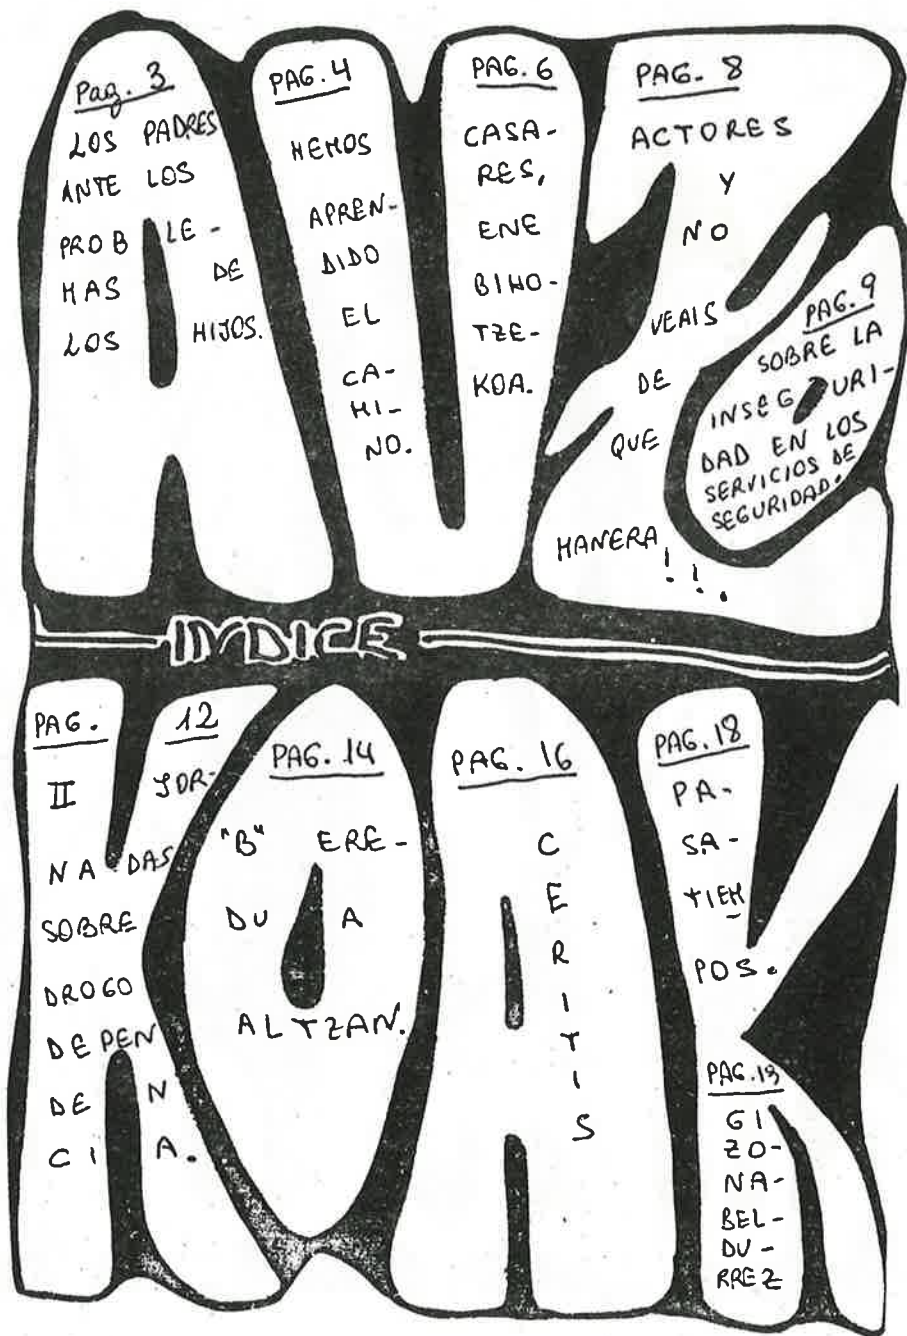 Pag. 3
LOS PADRES
ANTE LOS
PROBLE-
MAS DE
LOS HIJOS.
PAG. 4
HEMOS
APREN-
DIDO
EL
CA-
MI-
NO.
PAG. 6
CASA-
RES,
ENE
BIHO-
TZE-
KOA.
PAG. 8
ACTORES
Y
NO
VEAIS
DE
QUE
MANERA!!
PAG. 9
SOBRE LA
INSEGURI-
DAD EN LOS
SERVICIOS DE
SEGURIDAD.
AUZ
INDICE
KOAK
PAG. 12
II JOR-
NADAS
SOBRE
DROGO
DEPEN
DEN
CIA.
PAG. 14
"B" ERE-
DU A
ALTZAN.
PAG. 16
C
E
R
I
T
I
S
PAG. 18
PA-
SA-
TIEM
POS.
PAG. 19
GI
ZO-
NA-
BEL-
DU-
RREZ